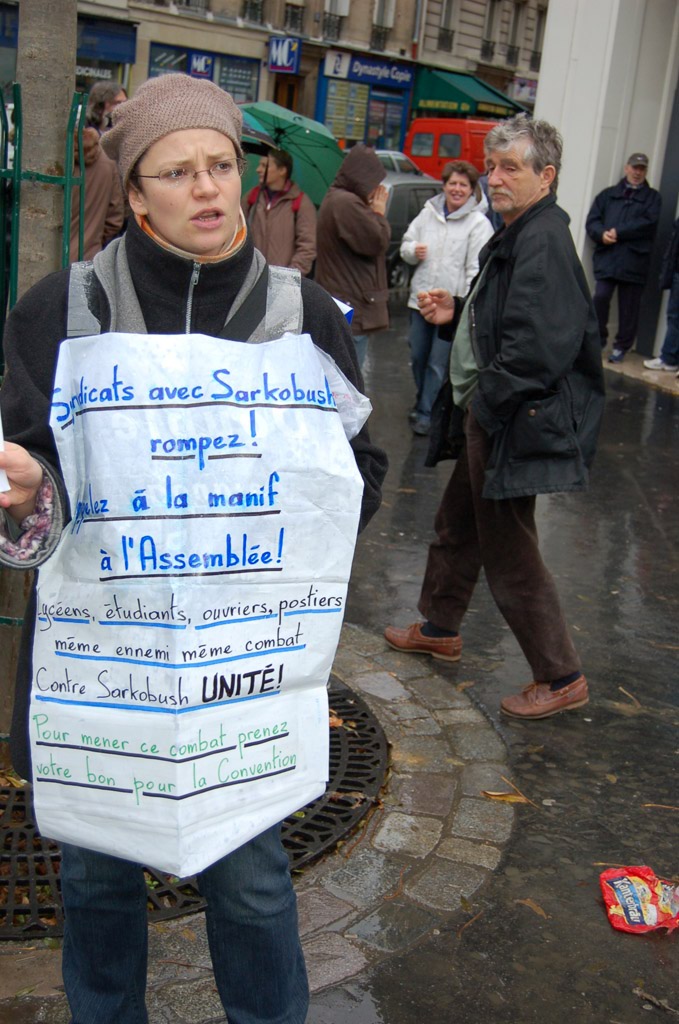 MC
Dynastyle Copie
ALIMENTATION
Syndicats avec Sarkobush
rompez!
à la manif
à l'Assemblée!
Lycéens, étudiants, ouvriers, postiers
même ennemi même combat
Contre Sarkobush UNITÉ!
Pour mener ce combat prenez
votre bon pour la Convention